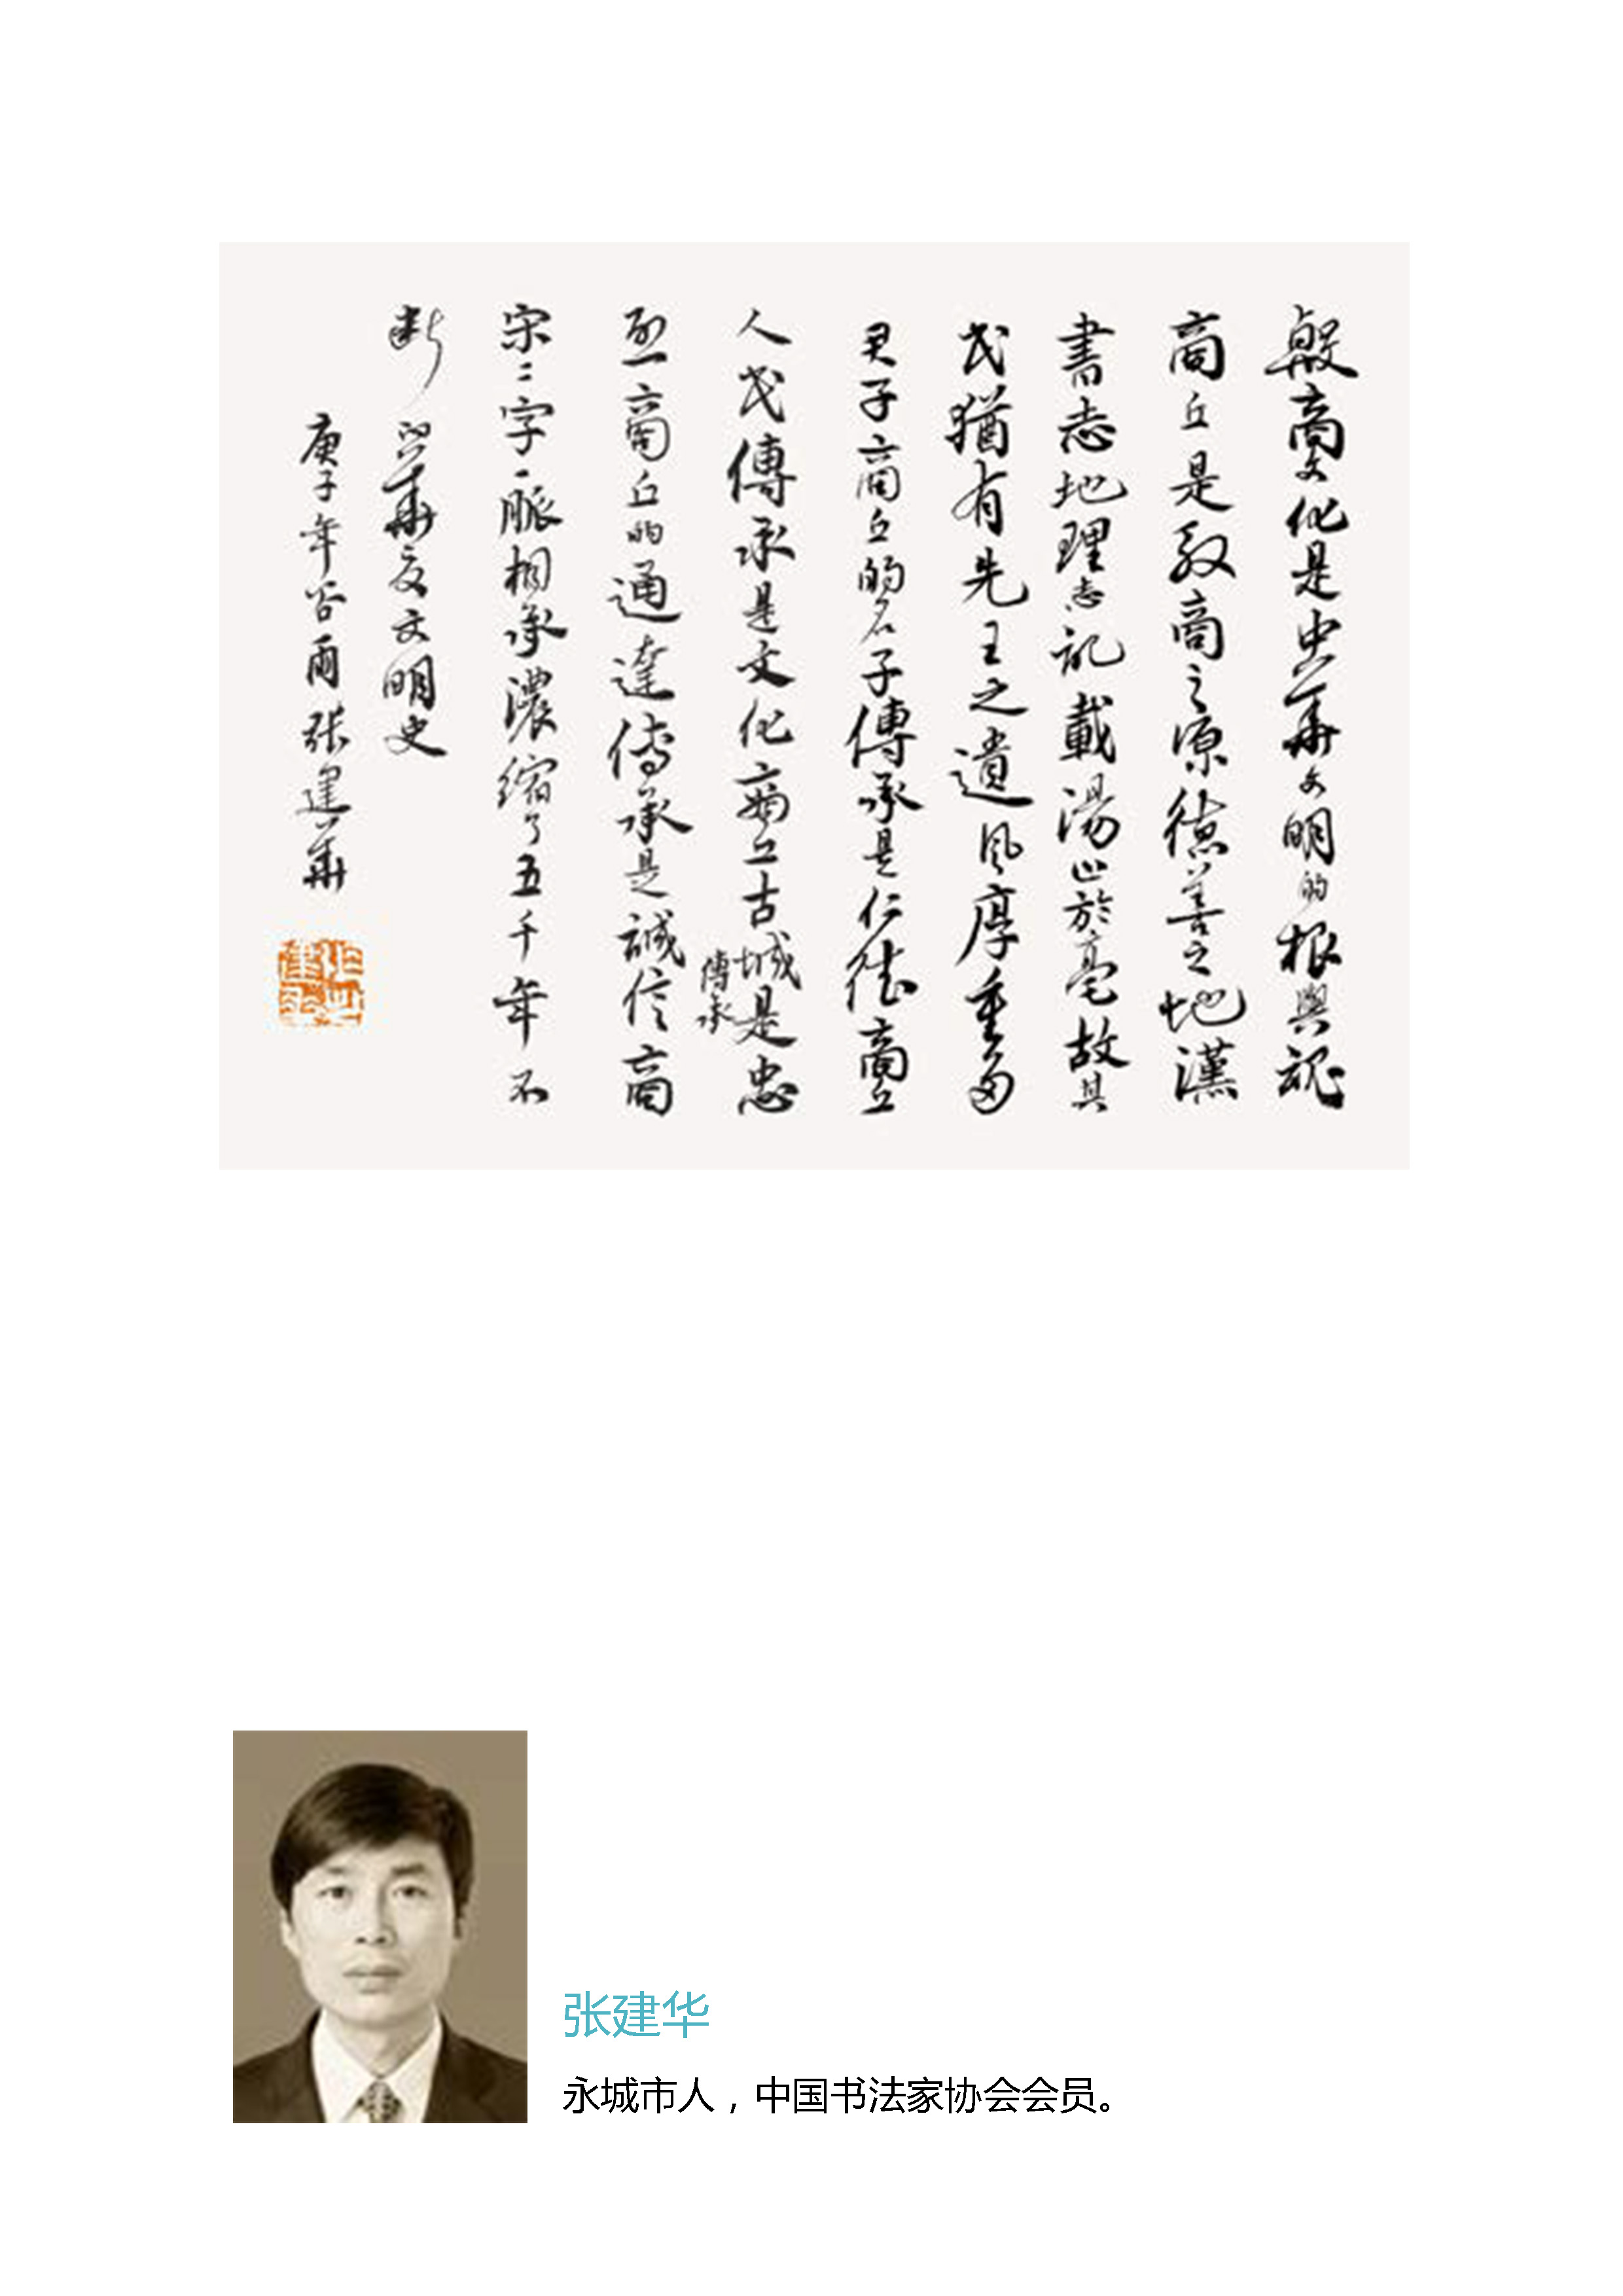 殷商文化是中華文明的根與魂
商丘是殷商之源德善之地漢
書志地理志記載湯止於亳故其
民猶有先王之遺風厚重多
君子商丘的名子傳承是仁德商丘
人民傳承是文化商丘古城傳承是忠
烈商丘的通達傳承是誠信商
宋二字一脈相承濃縮了五千年不
斷的華夏文明史
庚子年谷雨張建華
张建华
永城市人，中国书法家协会会员。